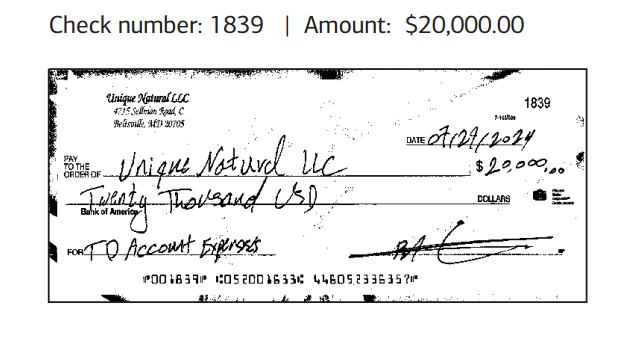 Check number: 1839 | Amount: $20,000.00
Unique Natural LLC
4715 Sellman Road, C
Beltsville, MD 20705
1839
DATE 07/29/2024
PAY TO THE ORDER OF Unique Natural LLC $20,000.00
Twenty Thousand USD DOLLARS
Bank of America
FOR TD Account Expenses
⑈001839⑈ ⑆052001633⑆ 446052336357⑈